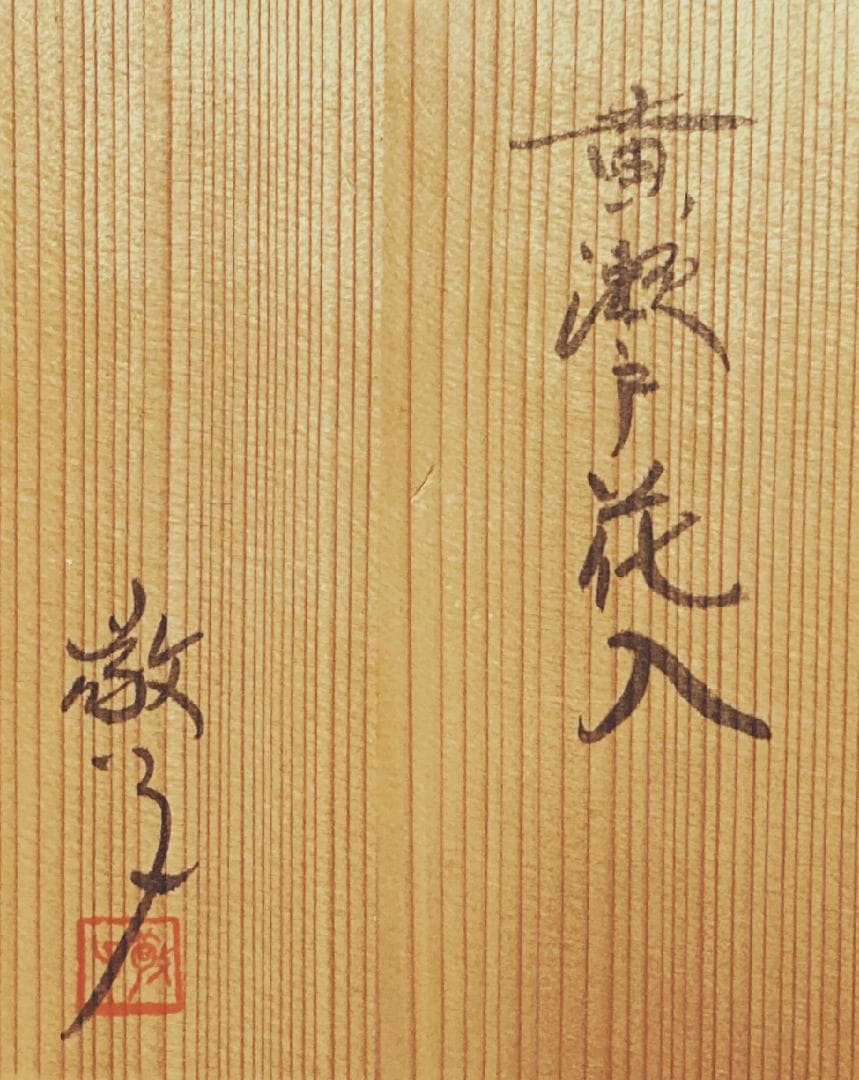 黄瀬戸花入
敬子